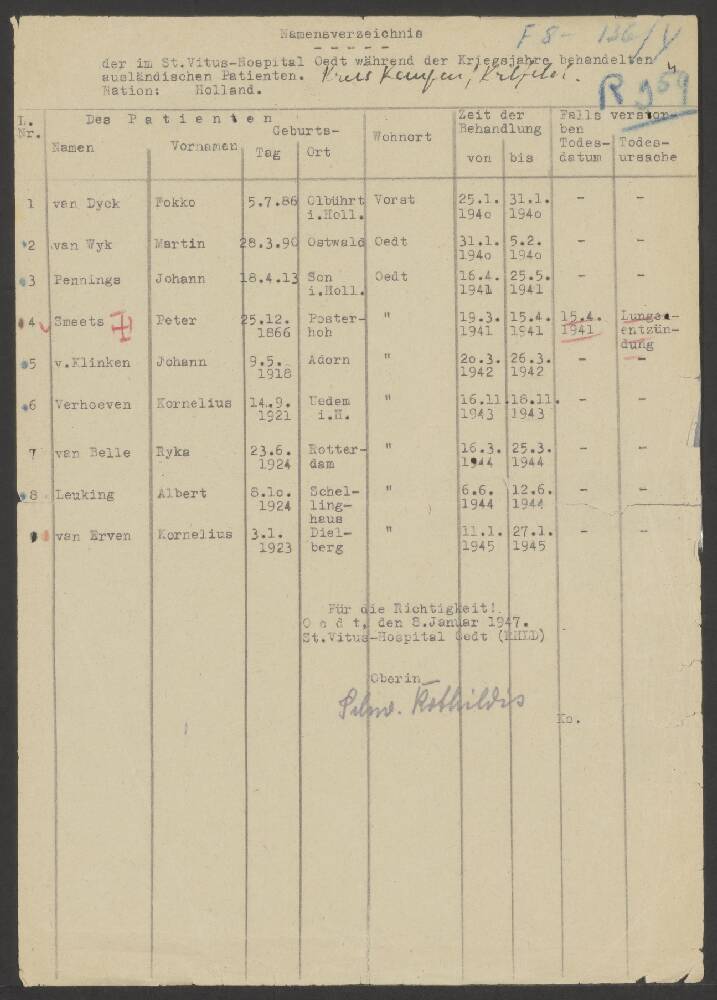 Namensverzeichnis
F 8- 136/V
der im St.Vitus-Hospital Oedt während der Kriegsjahre behandelten
ausländischen Patienten. Kreis Kempen/Krefeld.
Nation: Holland.
R 959
L. Des Patienten Zeit der Falls verstor-
Nr. Geburts- Wohnort Behandlung ben
Namen Vornamen Tag Ort von bis Todes- Todes-
datum ursache
1 van Dyck Fokko 5.7.86 Olbührt Vorst 25.1. 31.1. - -
i.Holl. 1940 1940
2 van Wyk Martin 28.3.90 Ostwald Oedt 31.1. 5.2. - -
1940 1940
3 Pennings Johann 18.4.13 Son Oedt 16.4. 25.5. - -
i.Holl. 1941 1941
4 Smeets Peter 25.12. Poster- " 19.3. 15.4. 15.4. Lungen-
1866 hoh 1941 1941 1941 entzün-
dung
5 v.Klinken Johann 9.5. Adorn " 20.3. 26.3. - -
1918 1942 1942
6 Verhoeven Kornelius 14.9. Uedem " 16.11. 18.11. - -
1921 i.H. 1943 1943
7 van Belle Ryka 23.6. Rotter- " 16.3. 25.3. - -
1924 dam 1944 1944
8 Leuking Albert 8.10. Schel- " 6.6. 12.6. - -
1924 ling- 1944 1944
haus
van Erven Kornelius 3.1. Diel- " 11.1. 27.1. - -
1923 berg 1945 1945
Für die Richtigkeit!
Oedt, den 8.Januar 1947.
St.Vitus-Hospital Oedt (RHLD)
Oberin
Schw. Rothildis
Ko.